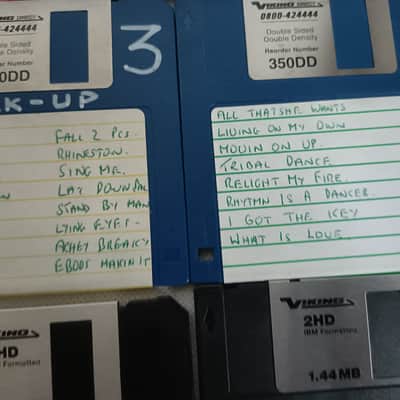 VIKING DIRECT
0800-424444
Double Sided
Double Density
Reorder Number
350DD
3
K-UP
FALL 2 PCS.
RHINESTON.
SING ME.
LAY DOWN
STAND BY MAN
LYING EYES.
ACHEY BREAKY
EBODY MAKIN IT
VIKING DIRECT
0800-424444
Double Sided
Double Density
Reorder Number
350DD
ALL THATSHE WANTS
LIVING ON MY OWN
MOVIN ON UP.
TRIBAL DANCE
RELIGHT MY FIRE.
RHYTMN IS A DANCER.
I GOT THE KEY
WHAT IS LOVE.
VIKING
HD
Formatted
VIKING
2HD
IBM Formatted
1.44 MB